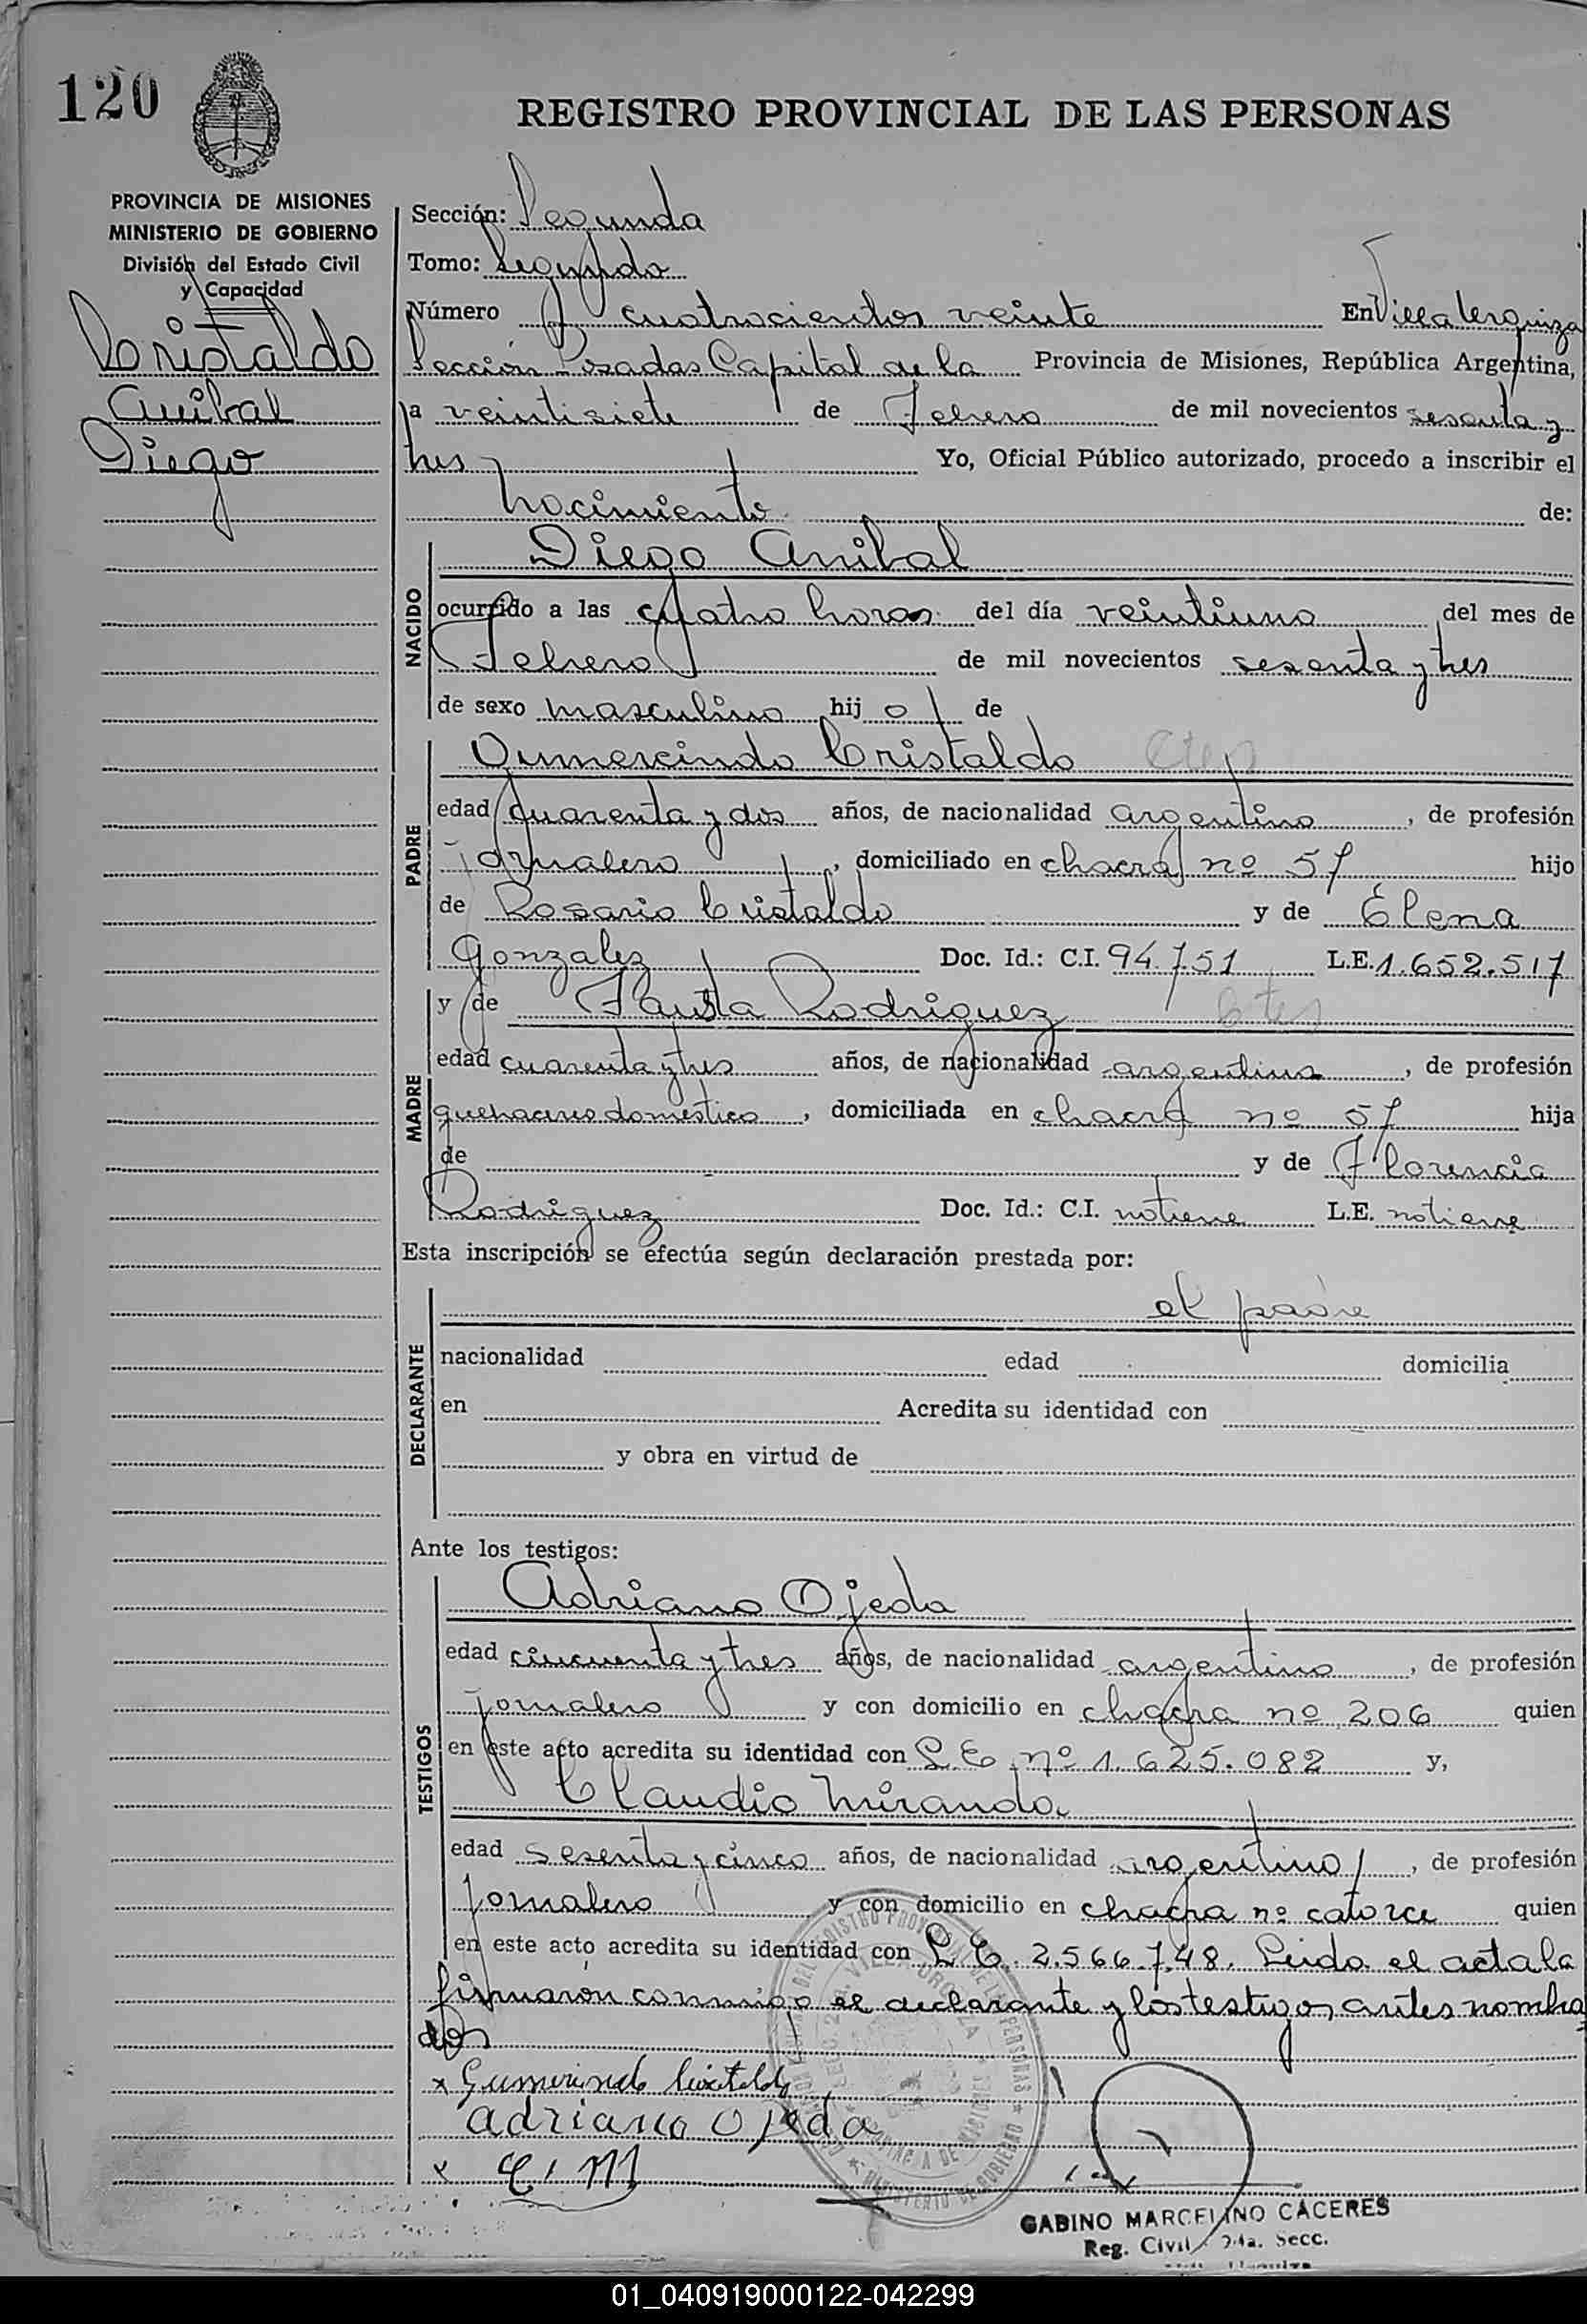 120
REGISTRO PROVINCIAL DE LAS PERSONAS
PROVINCIA DE MISIONES
MINISTERIO DE GOBIERNO
División del Estado Civil
y Capacidad
Cristaldo
Anibal
Diego
Sección: Segunda
Tomo: Segundo
Número cuatrocientos veinte En Villa Urquiza
Sección Posadas Capital de la Provincia de Misiones, República Argentina,
a veintisiete de Febrero de mil novecientos sesenta y
tres Yo, Oficial Público autorizado, procedo a inscribir el
Nacimiento de:
NACIDO
Diego Anibal
ocurrido a las cuatro horas del día veintiuno del mes de
Febrero de mil novecientos sesenta y tres
de sexo masculino hij o de
PADRE
Gumercindo Cristaldo Ctes
edad cuarenta y dos años, de nacionalidad argentino, de profesión
jornalero, domiciliado en chacra nº 57 hijo
de Rosario Cristaldo y de Elena
Gonzalez Doc. Id.: C.I. 94.751 L.E. 1.652.517
MADRE
y de Fausta Rodriguez Ctes
edad cuarenta y tres años, de nacionalidad argentina, de profesión
quehaceres domestico, domiciliada en chacra nº 57 hija
de y de Florencia
Rodriguez Doc. Id.: C.I. no tiene L.E. no tiene
Esta inscripción se efectúa según declaración prestada por:
DECLARANTE
el padre
nacionalidad edad domicilia
en Acredita su identidad con
y obra en virtud de
Ante los testigos:
TESTIGOS
Adriano Ojeda
edad cincuenta y tres años, de nacionalidad argentino, de profesión
jornalero y con domicilio en chacra nº 206 quien
en este acto acredita su identidad con L.E. nº 1.625.082 y,
Claudio Miranda
edad sesenta y cinco años, de nacionalidad argentino, de profesión
jornalero y con domicilio en chacra nº catorce quien
en este acto acredita su identidad con L.E. 2.566.748. Leida el acta la
firmaron conmigo el declarante y los testigos antes nombra
dos
x Gumercindo Cristaldo
adriano Ojeda
x C. M
GABINO MARCELINO CACERES
Reg. Civil Secc.
01_040919000122-042299